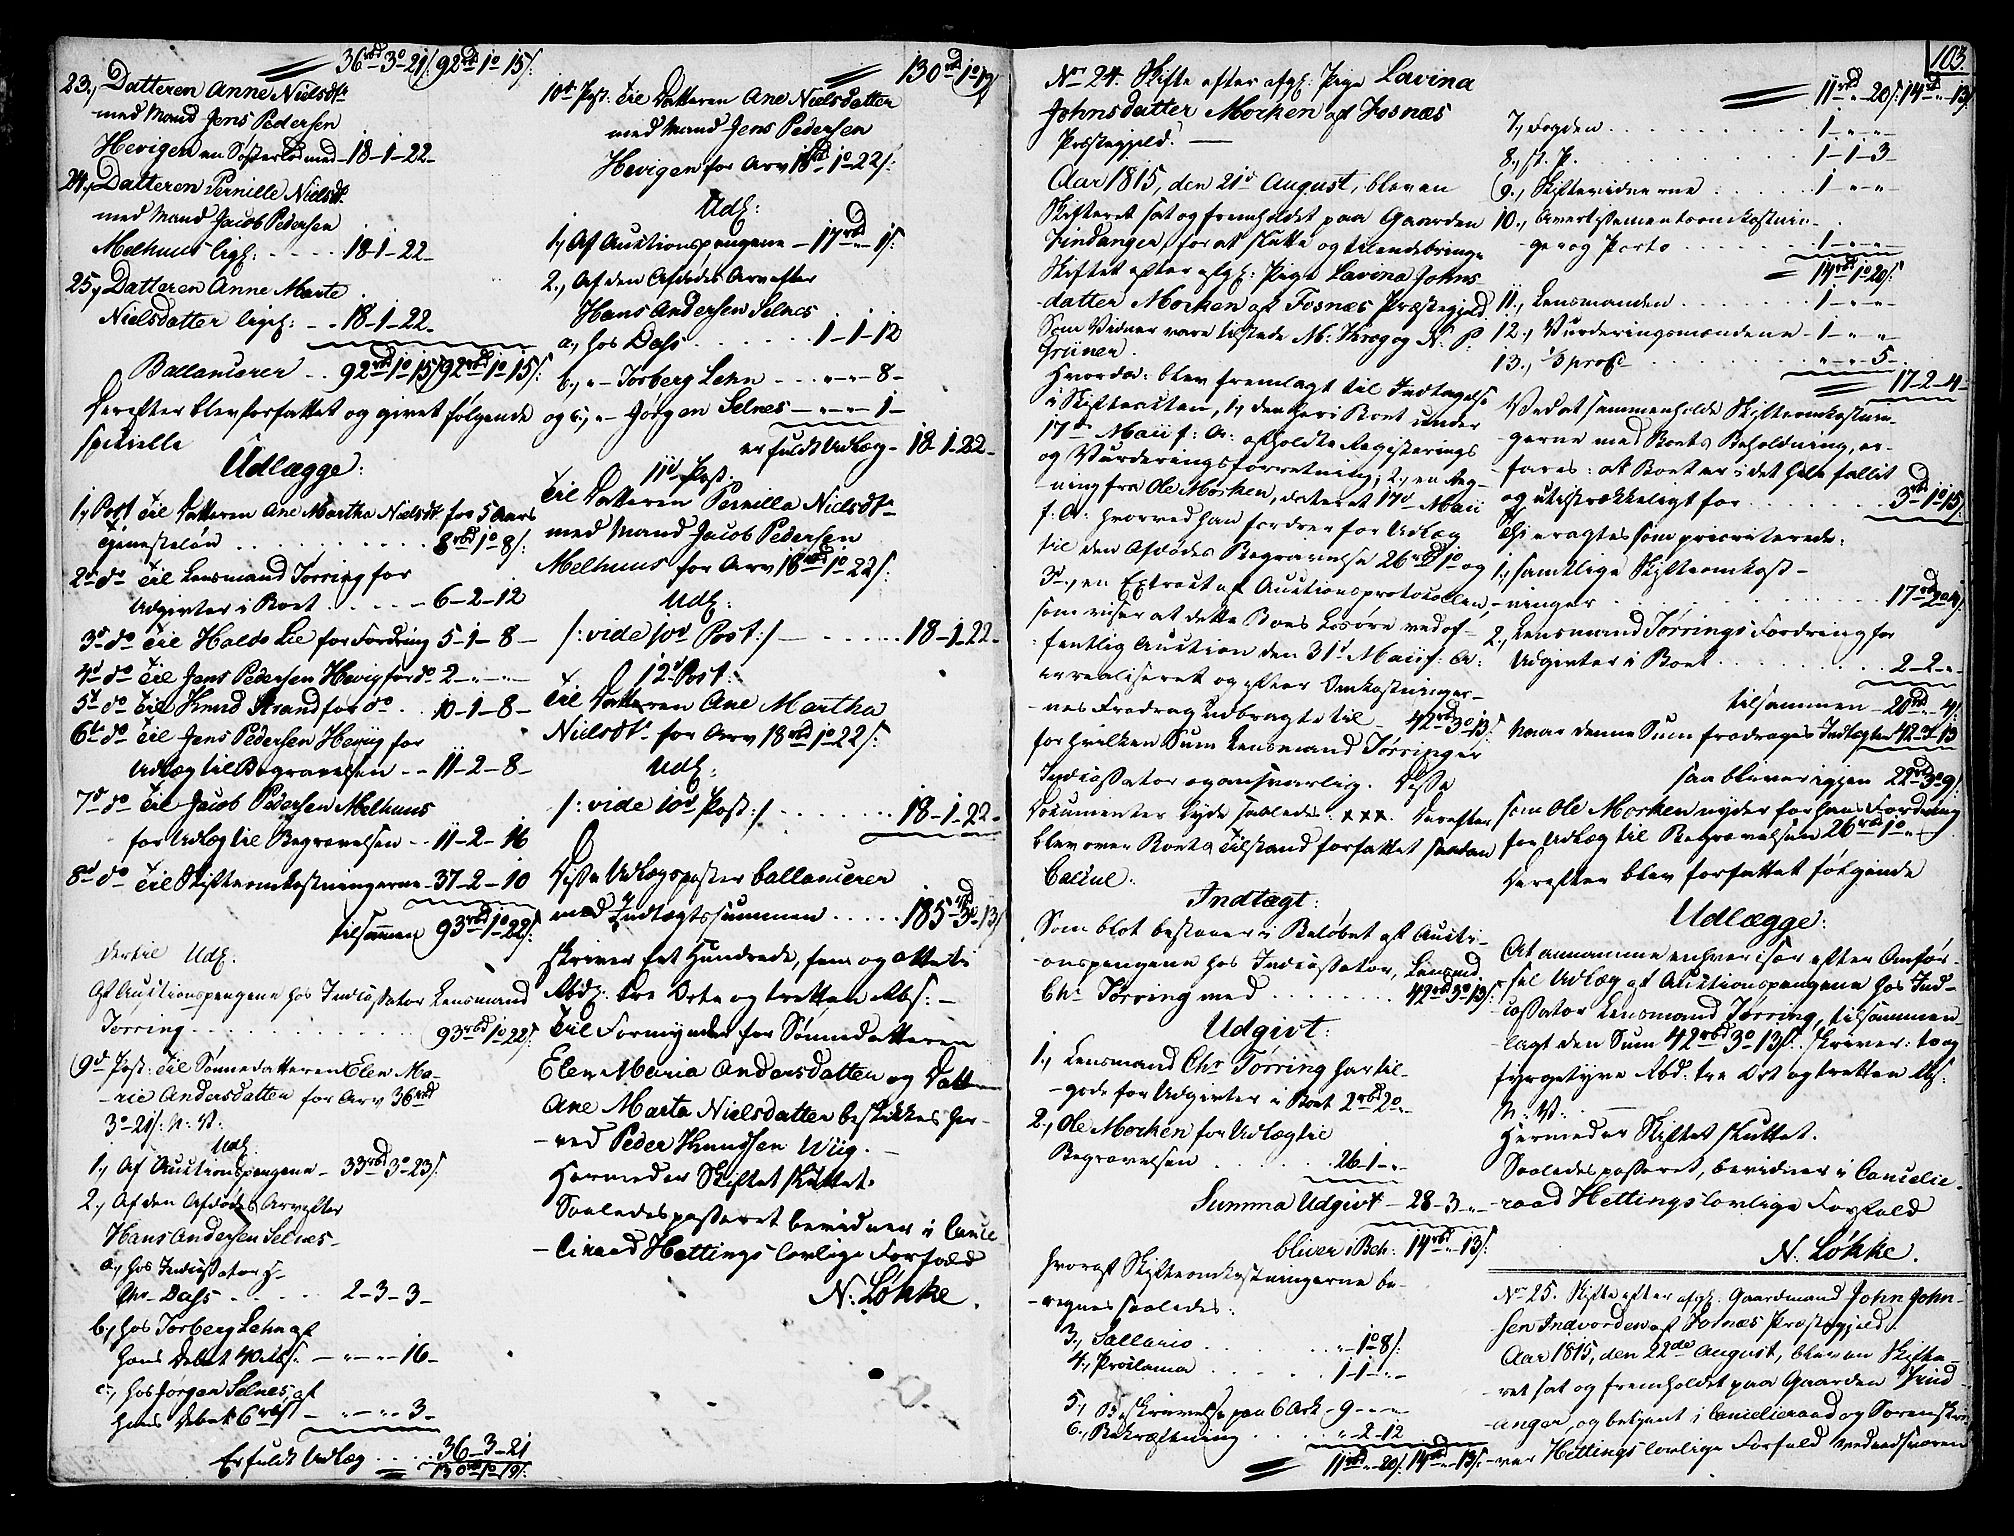 36rbd 3o 21s. 92rbd 1o 15s.
23, Datteren Anne Nielsdtr
med Mand Jens Pedersen
Hevigen en Søsterlod med - 18-1-22-
24, Datteren Pernille Nielsdtr
med Mand Jacob Pedersen
Melhuus ligs: - - - - 18-1-22-
25, Datteren Anne Marte
Nielsdatter ligs: - - 18-1-22-
Ballancerer - - 92rbd 1o 15s. 92rbd 1o 15s.
Derefter blev forfattet og givet følgende
specielle
Udlægge:
1, Post Til Datteren Ane Martha Nielsdtr for 5 Aars
Tjenesteløn . . . . . . . . . 8rbd 1o 8s:
2d do Til Lensmand Torring for
Udgivter i Boet . . . . . 6-2-12
3d do Til Halde Lie for Fordring 5-1-8-
4d do Til Jens Pedersen Hevig for do 2-"-"-
5t do Til Knud Strand for do . . 10-1-8-
6t do Til Jens Pedersen Hevig for
Udlæg til Begravelsen - - 11-2-8-
7d do Til Jacob Pedersen Melhuus
for Udlæg til Begravelsen - - 11-2-16
8d do Til Skifteomkostningerne - 37-2-10
tilsammen 93rbd 1o 22s:
Dertil Udl:
Af Auctionspengene hos Incassator Lensmand
Torring . . . . . . . . . . . . 93rbd 1o 22s.
9d Post: Til Sønnedatteren Elen Ma-
-rie Andersdatter for Arv 36rbd
3o 21s: N: V:
Udl:
1, Af Auctionspengene - 33rbd 3o 23s.
2, Af den Afdødes Arv efter
Hans Andersen Selnes-
a, hos Incassator H-
Chr Dass - . . . . . 2-3-3-
b, hos Torberg Lehn af
hans Debet 40rbs: - - "-"-16-
c, hos Jørgen Selnes, af
hans Debet 6rbs - - "-"-3-
Er fuldt Udlæg . . . . 36-3-21
130rbd 1o 19s:
130rbd 1o 19
10d Post: Til Datteren Ane Nielsdatter
med Mand Jens Pedersen
Hevigen for Arv 18rbd 1o 22s:
Udl:
1, Af Auctionspengene - 17rbd " 1s:
2, Af den Afdødes Arv efter
Hans Andersen Selnes
a, hos Dass . . . . . . . 1-1-12
b, " - Torberg Lehn - - - "-"-8-
og c, " - Jørgen Selnes - "-"-1-
er fuldt Udlæg - 18-1-22-
11d Post.
Til Datteren Pernilla Nielsdtr
med Mand Jacob Pedersen
Melhuus for Arv 18rbd 1o 22s:
Udl:
/: vide 10d Post :/ - . . . . . . 18-1-22-
12d Post:
Til Datteren Ane Martha
Nielsdtr for Arv 18rbd 1o 22s:
Udl:
/: vide 10d Post :/ . . . . . . . 18-1-22-
Disse Udlægsposter ballancerer
med Indtægtssummen . . . . . 185rbd 3o 13s
skriver Et Hundrede, fem og otteti
Rbd: tre Ort og tretten Rbs: -
Til Formynder for Sønnedatteren
Elen Maria Andersdatter og Datter
Ane Marta Nielsdatter beskikkes her-
-ved Peder Knudsen Wiig. -
Hermed er Skiftet sluttet.
Saaledes passeret bevidner i Cance-
-lieraad Hettings lovlige Forfald
N: Løkke.
103.
No 24. Skifte efter afg: Pige Lavina
Johnsdatter Morken af Fosnæs
Præstegjeld. -
Aar 1815, den 21d August, bleven
Skifteret sat og fremholdet paa Gaarden
Lindanger, for at slutte og tilendebringe
Skiftet efter afg: Pige Lavina Johns-
-datter Morken af Fosnæs Præstegjeld.
Som Vidner vare tilstede M: Krog og N: P:
Grüner.
Hvorda: blev fremlagt til Indtagelse
i Skifteacten, 1, den her i Boet under
17d Maii f: A: afholdte Registerings
og Vurderingsforretning; 2, en Reg-
-ning fra Ole Morken, dateret 17d Maii
f: A: hvorved han fordrer for Udlæg
til den Afdødes Begravelse 26rbd 1o og
3d, en Extract af Auctionsprotocollen,
som viser at dette Boes Løsøre ved of-
-fentlig Auction den 31d Maii f: A:
er realiseret og efter Omkostninger-
-nes Fradrag udbragte til - 42rbd 3o 13s:
for hvilken Sum Lensmand Torring er
Incassator og ansvarlig. Disse
Documenter lyde saaledes . xxx. Derefter
blev over Boets Tilstand forfattet saadan
Calcul.
Indtægt:
Som blot bestaaer i Beløbet af Aucti-
-onspengene hos Incassator, Lensmd
Chr Torring med . . . . . . . . 42rbd 3o 13s:
Udgivt:
1, Lensmand Chr Torring har til-
-gode for Udgivter i Boet 2rbd 2o-
2, Ole Morken for Udlæg til
Begravelsen . . . . . 26-1-"-
Summa Udgivt - 28-3-"-
bliver i Beh: 14rbd - 13s:
hvoraf Skifteomkostningerne be-
-regnes saaledes:
3, Sallario . . . . . . . "-1o 8s:
4, Proclama . . . . . . 1-1-"-
5, Beskrivelse paa 6 Ark - 9-"-"-
6, Bekræftning . . . . . "-2-12
11rbd " 20s: 14rbd - 13s:
11rbd " 20s: 14rbd " 13s
7, Fogden . . . . . . . . . 1-"-"-
8, st. P. . . . . . . . . . 1-1-3-
9, Skiftevidnerne . . . . . 1-"-"
10, Avertissementsomkostnin-
-ger og Porto . . . . . . . 1-"-"-
14rbd 1o 20s:
11, Lensmanden . . . . . . 1-"-"-
12, Vurderingsmændene - 1-"-"
13, 1/3 proCt . . . . . . . "-"-5-
17-2-4-
Ved at sammenholde Skifteomkostnin-
-gerne med Boets Beholdning, er-
-fares: at Boet er i det hele fallit
og utilstrækkeligt for . . . . . . . 3rbd 1o 15s:
Thi eragtes som prioriterede:
1, samtlige Skifteomkost-
-ninger . . . . . . . . . . . 17rbd 2o 4s.
2, Lensmand Torrings Fordring for
Udgivter i Boet . . . . . . . . 2-2-"-
tilsammen - 20rbd " 4s:
Naar denne Sum fradrages Indtægten 42-3-13
saa bliver igjen 22rbd 3o 9s:
som Ole Morken nyder for hans Fordring
for Udlæg til Begravelsen 26rbd 1o "-
Derefter blev forfattet følgende
Udlægge:
At annamme enhver især efter Anfør-
-sel Udlæg af Auctionspengene hos In-
-cassator Lensmand Torring, tilsammen-
-lagt den Sum 42rbd 3o 13s. skriver: to og
fyrgetyve Rbd: tre Ort og tretten Rbs:
N: V: -
Hermed er Skiftet sluttet.
Saaledes passeret, bevidner i Cancelie-
-raad Hettings lovlige Forfald
N: Løkke.
No 25. Skifte efter afg: Gaardmand John John-
-sen Indvorden af Fosnæs Præstegjeld.
Aar 1815, den 22de August, bleven Skifte-
-ret sat og fremholdet paa Gaarden Lind-
-anger, og betjent i Cancelieraad og Sorenskri-
-ver Hettings lovlige Forfald ved edsvoren